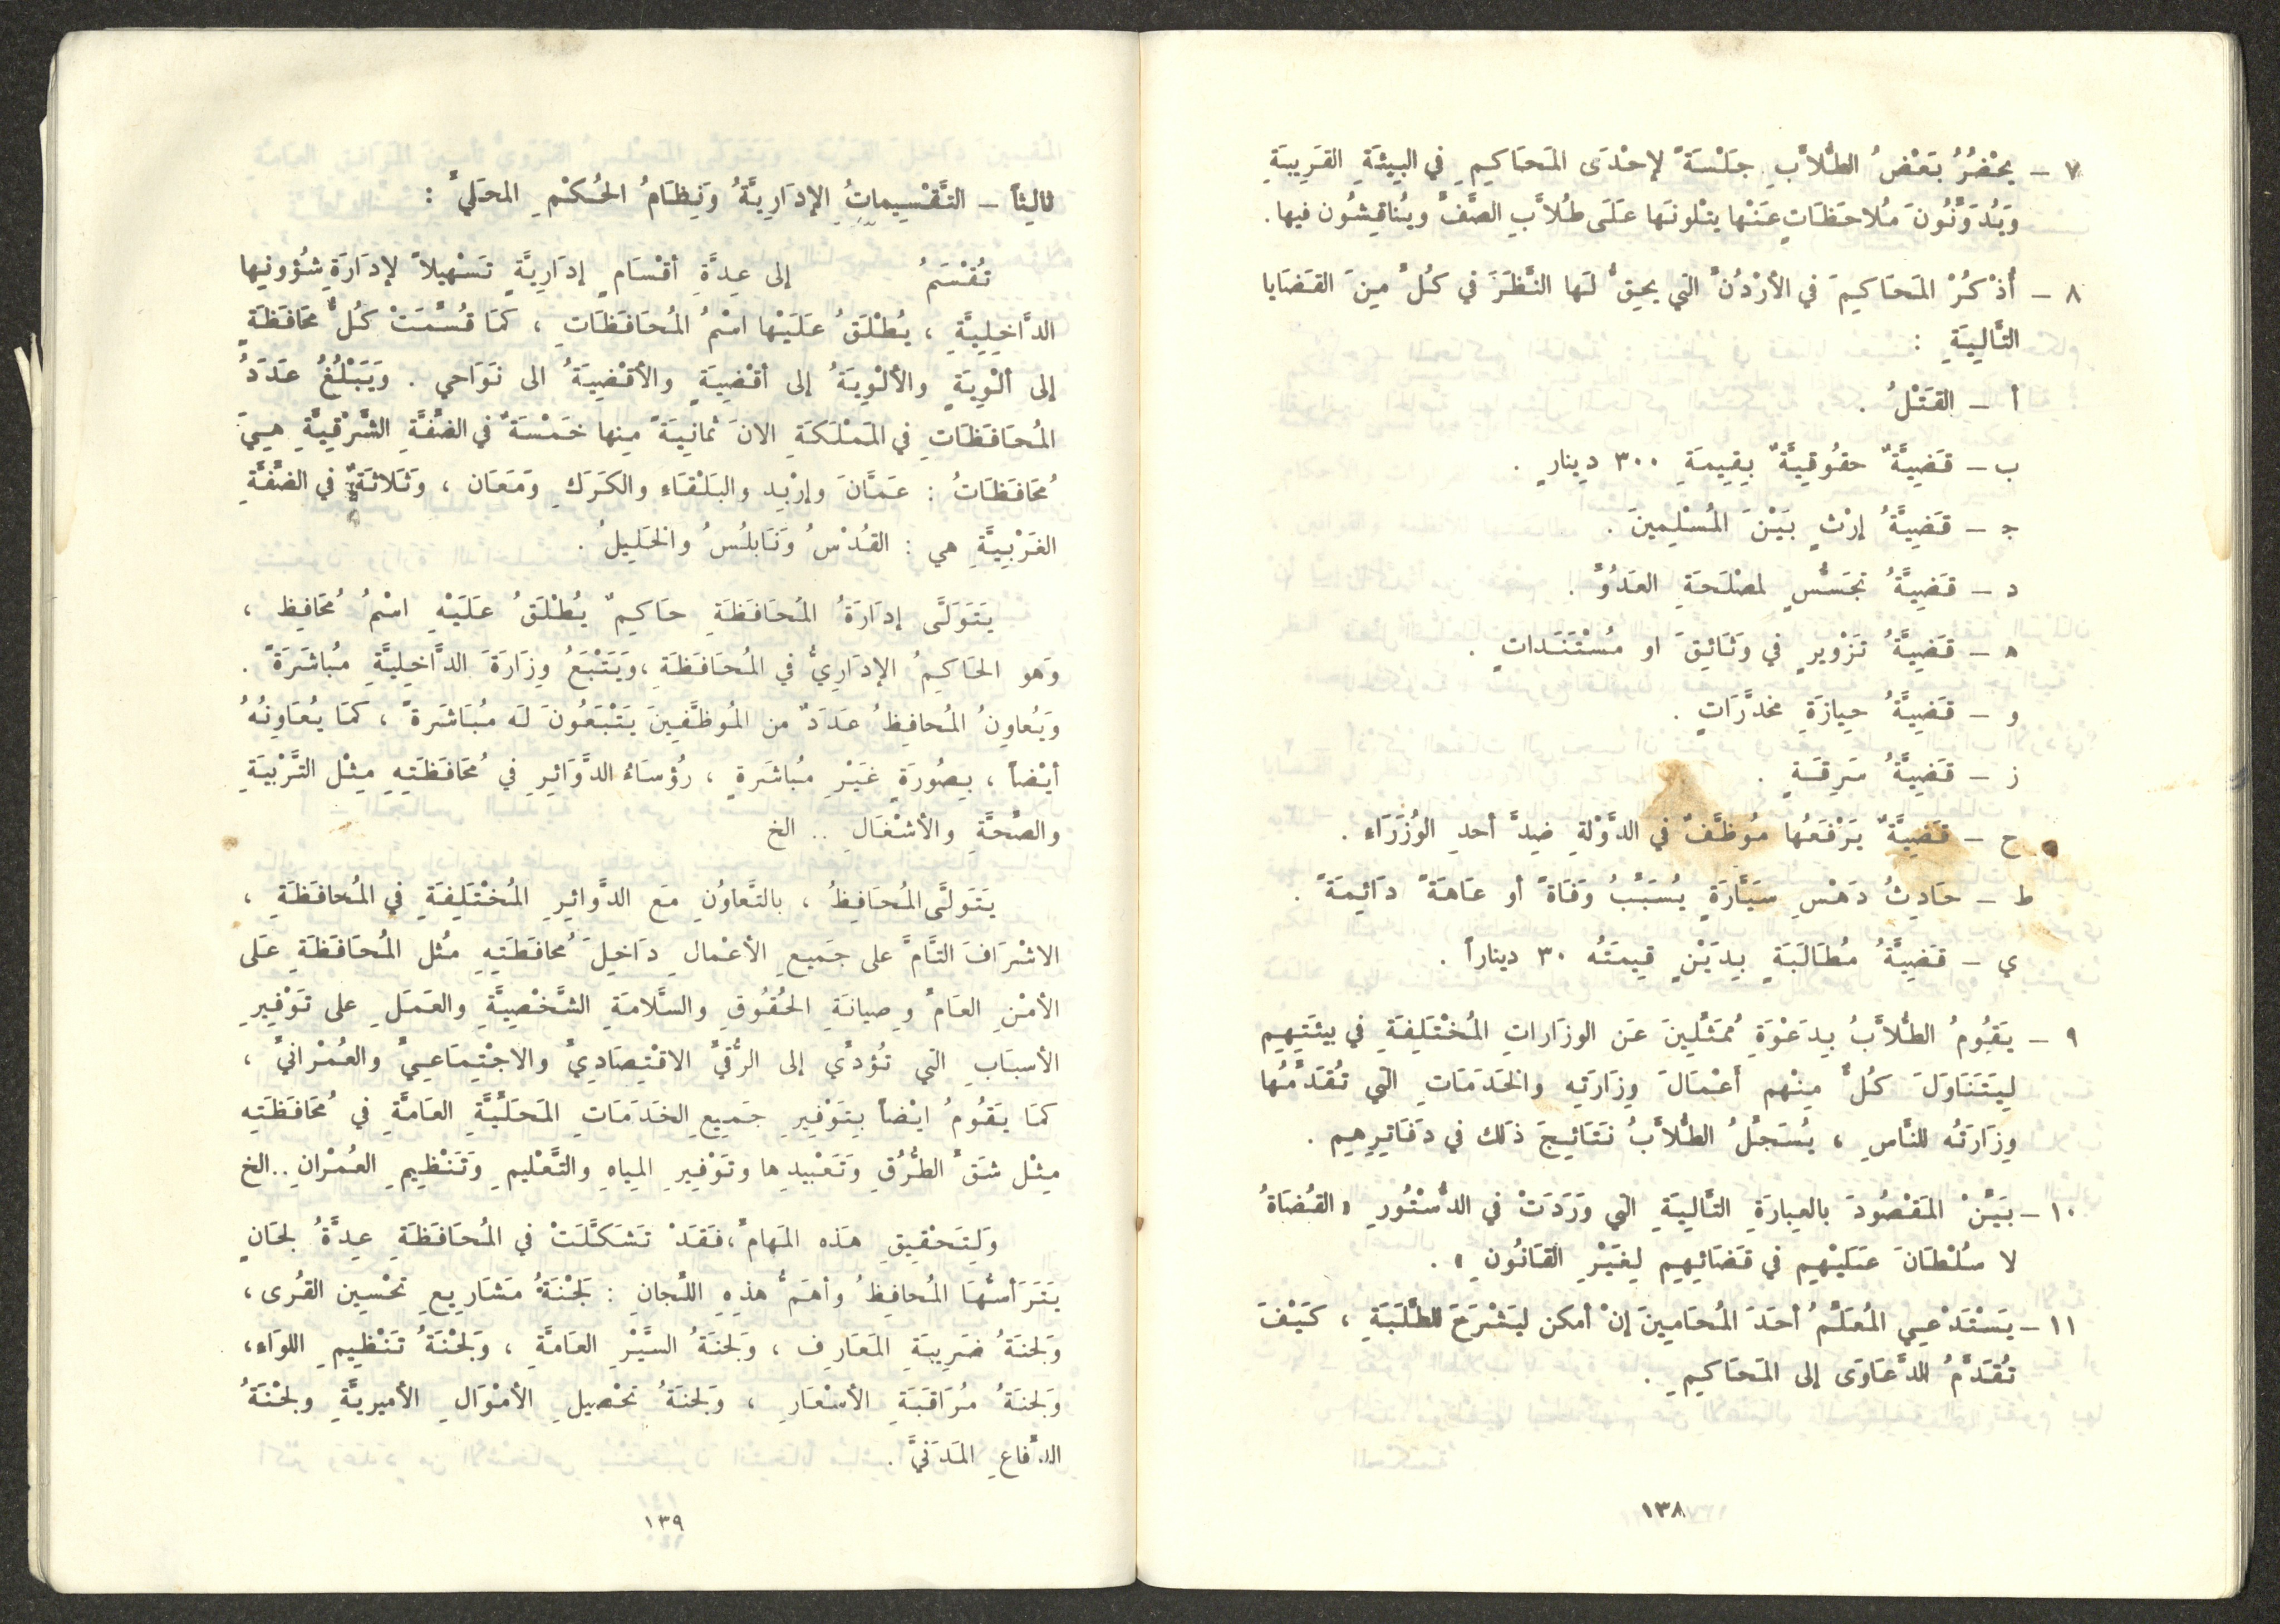 ٧ – يَحْضُرُ بَعْضُ الطُّلاَّبِ جَلْسَةً لإحْدَى المَحَاكِمِ فِي البِيئَةِ القَرِيبَةِ
وَيُدَوِّنُونَ مُلاحَظَاتٍ عَنْها يتْلونَها عَلَى طُلاَّبِ الصَّفِّ ويُناقِشُون فيها.
٨ – أُذْكُرْ المَحَاكِمَ في الأرْدُنِّ الَتي يحِقُّ لَها النَّظَرَ في كُلٍّ مِنَ القَضَايا
التَّالِيَةِ :
أ – القَتْلُ .
ب – قَضِيَّةٌ حقُوقِيَّةٌ بِقِيمَةِ ٣٠٠ دِينارٍ .
ج – قَضِيَّةُ إرْثٍ بَيْنَ المُسْلِمينَ .
د – قَضِيَّةُ تَجَسُّسٍ لمصْلَحَةِ العَدُوِّ .
ه – قَضِيَّةُ تَزْويرٍ في وَثَائِقَ او مُسْتَنَداتٍ .
و – قَضِيَّةُ حِيازَةِ مخدَّرَاتٍ .
ز – قَضِيَّةُ سَرِقَةٍ .
ح – قَضِيَّةٌ يَرْفَعُها مُوظَّفٌ في الدَّوْلةِ ضِدَّ أحدِ الوُزَرَاء .
ط – حَادِثُ دَهْسِ سَيَّارَةٍ يُسَبِّبُ وَفَاةً أو عَاهَةً دَائِمَةً .
ي – قَضِيَّةُ مُطَالَبَةٍ بِدَيْنٍ قِيمَتُه ٣٠ ديناراً .
٩ – يَقُومُ الطُّلاَّبُ بِدَعْوَةِ مُمَثِّلِينَ عَن الوزَاراتِ المُخْتَلِفَةِ في بيئتِهِم
لِيَتَنَاوَلَ كُلٌّ مِنْهم أَعْمَالَ وِزَارَتِه والخَدَمَاتِ الَّتي تُقَدِّمُها
وِزَارَتُه للنَّاسِ ، يُسَجِّلُ الطُّلاَّبُ نَتَائِجَ ذلك في دَفَاتِرِهِم .
١٠ – بَيِّنْ المَقْصُودَ بالعِبارَةِ التَّالِيَةِ الَّتي وَرَدَتْ في الدُّسْتُورِ « القُضَاةُ
لا سُلْطَانَ عَلَيْهِم في قَضَائِهِم لِغَيْرِ القَانُونِ » .
١١ – يَسْتَدْعِي المُعَلِّمُ أحَدَ المُحَامِينَ إنْ أمكن ليَشْرَحَ للطَّلَبَةِ ، كَيْفَ
تُقَدَّمُ الدَّعَاوَى إلى المَحَاكِمِ .
١٣٨
ثالِثاً – التَّقْسِيماتُ الإدَارِيَّةُ وَنِظَامُ الحُكْمِ المحَلِيِّ :
تُقْسَمُ إلى عِدَّةِ أقْسَامٍ إدَارِيَّةٍ تَسْهيلاً لإدَارَةِ شُؤونِها
الدَّاخِلِيَّةِ ، يُطْلَقُ عَلَيْها اسْمُ المُحَافَظَاتِ ، كمَا قُسِّمَتْ كُلُّ مُحَافَظَةٍ
إلى ألْوِيَةٍ والألْوِيَةُ إلى أقْضِيَةٍ والأقْضِيَةُ الى نَوَاحي . وَيَبْلُغُ عَدَدُ
المُحَافَظَاتِ في المَمْلَكَةِ الانَ ثمانِيَةً مِنها خَمْسَةٌ في الضِّفَّةِ الشَّرْقِيَّةِ هِيَ
مُحَافَظَاتُ : عَمَّانَ وإرْبِد والبَلْقَاءِ والكَرَكِ وَمَعَان ، وَثَلاثَةٌ في الضِّفَّةِ
الغَرْبِيَّةِ هي : القُدْسُ وَنَابلُسُ والخَليلُ .
يَتَوَلَّى إدَارَةُ المُحَافَظَةِ حَاكِمٌ يُطْلَقُ عَلَيْهِ اسْمُ مُحَافِظ ،
وَهو الحَاكِمُ الإدَارِيُّ في المُحَافَظَةِ ، وَيَتْبَعُ وِزَارَةَ الدَّاخِلِيَّةِ مُباشَرَةً .
وَيُعاوِنُ المُحافِظُ عَدَدٌ من المُوظَّفِينَ يَتْبَعُونَ لَه مُبَاشَرةً ، كمَا يُعَاوِنُهُ
أيْضاً ، بِصُورَةٍ غَيْرِ مُباشَرةٍ ، رُؤسَاءُ الدَّوَائِرِ في مُحَافَظَتِهِ مِثْل التَّرْبيَةِ
والصِّحَّةِ والأشْغَالِ .. الخ
يَتَوَلَّى المُحَافِظُ ، بالتَّعاوُنِ مَع الدَّوائِرِ المُخْتَلِفَةِ في المُحافَظَةِ ،
الاشْرَافَ التَّامَّ على جَميعِ الأعْمالِ دَاخِلَ مُحافَظَتِهِ مُثل المُحَافَظَةِ عَلى
الأمْنِ العَامِّ وصِيانَةِ الحُقُوقِ والسَّلامَةِ الشَّخْصِيَّةِ والعَمَلِ على تَوْفِيرِ
الأسبَابِ التي تُؤدِّي إلى الرُّقيِّ الاقْتِصَادِيِّ والاجْتِمَاعِيِّ والعُمْرَانيِّ ،
كمَا يَقُومُ ايْضاً بِتَوْفِيرِ جَمِيعِ الخَدَمَاتِ المَحَلِّيَّةِ العَامَّةِ في مُحَافَظَتِه
مِثْل شَقِّ الطُّرُقِ وَتَعْبيدِها وتَوْفِيرِ المِياهِ والتَّعْليمِ وَتَنْظِيمِ العُمْرانِ .. الخ
وَلِتَحْقِيقِ هَذه المَهامِّ ، فَقَدْ تَشَكَّلَتْ في المُحَافَظَةِ عِدَّةُ لجَانٍ
يَتَرَأسُّهَا المُحافِظُ وأهَمُّ هذِهِ اللِّجانِ : لَجْنَةُ مَشَارِيعِ تحْسِين القُرى ،
وَلجنَةُ ضَرِيبَةِ المَعَارِف ، وَلجنَةُ السَّيْرِ العَامَّةِ ، وَلجْنَةُ تَنْظِيمِ اللوَاء ،
وَلجنَةُ مُرَاقَبَةِ الأسْعَارِ ، وَلجنَةُ تحْصيلِ الأمْوَالِ الأميريَّةِ ولجْنَةُ
الدِّفاعِ المَدَنيِّ .
١٣٩